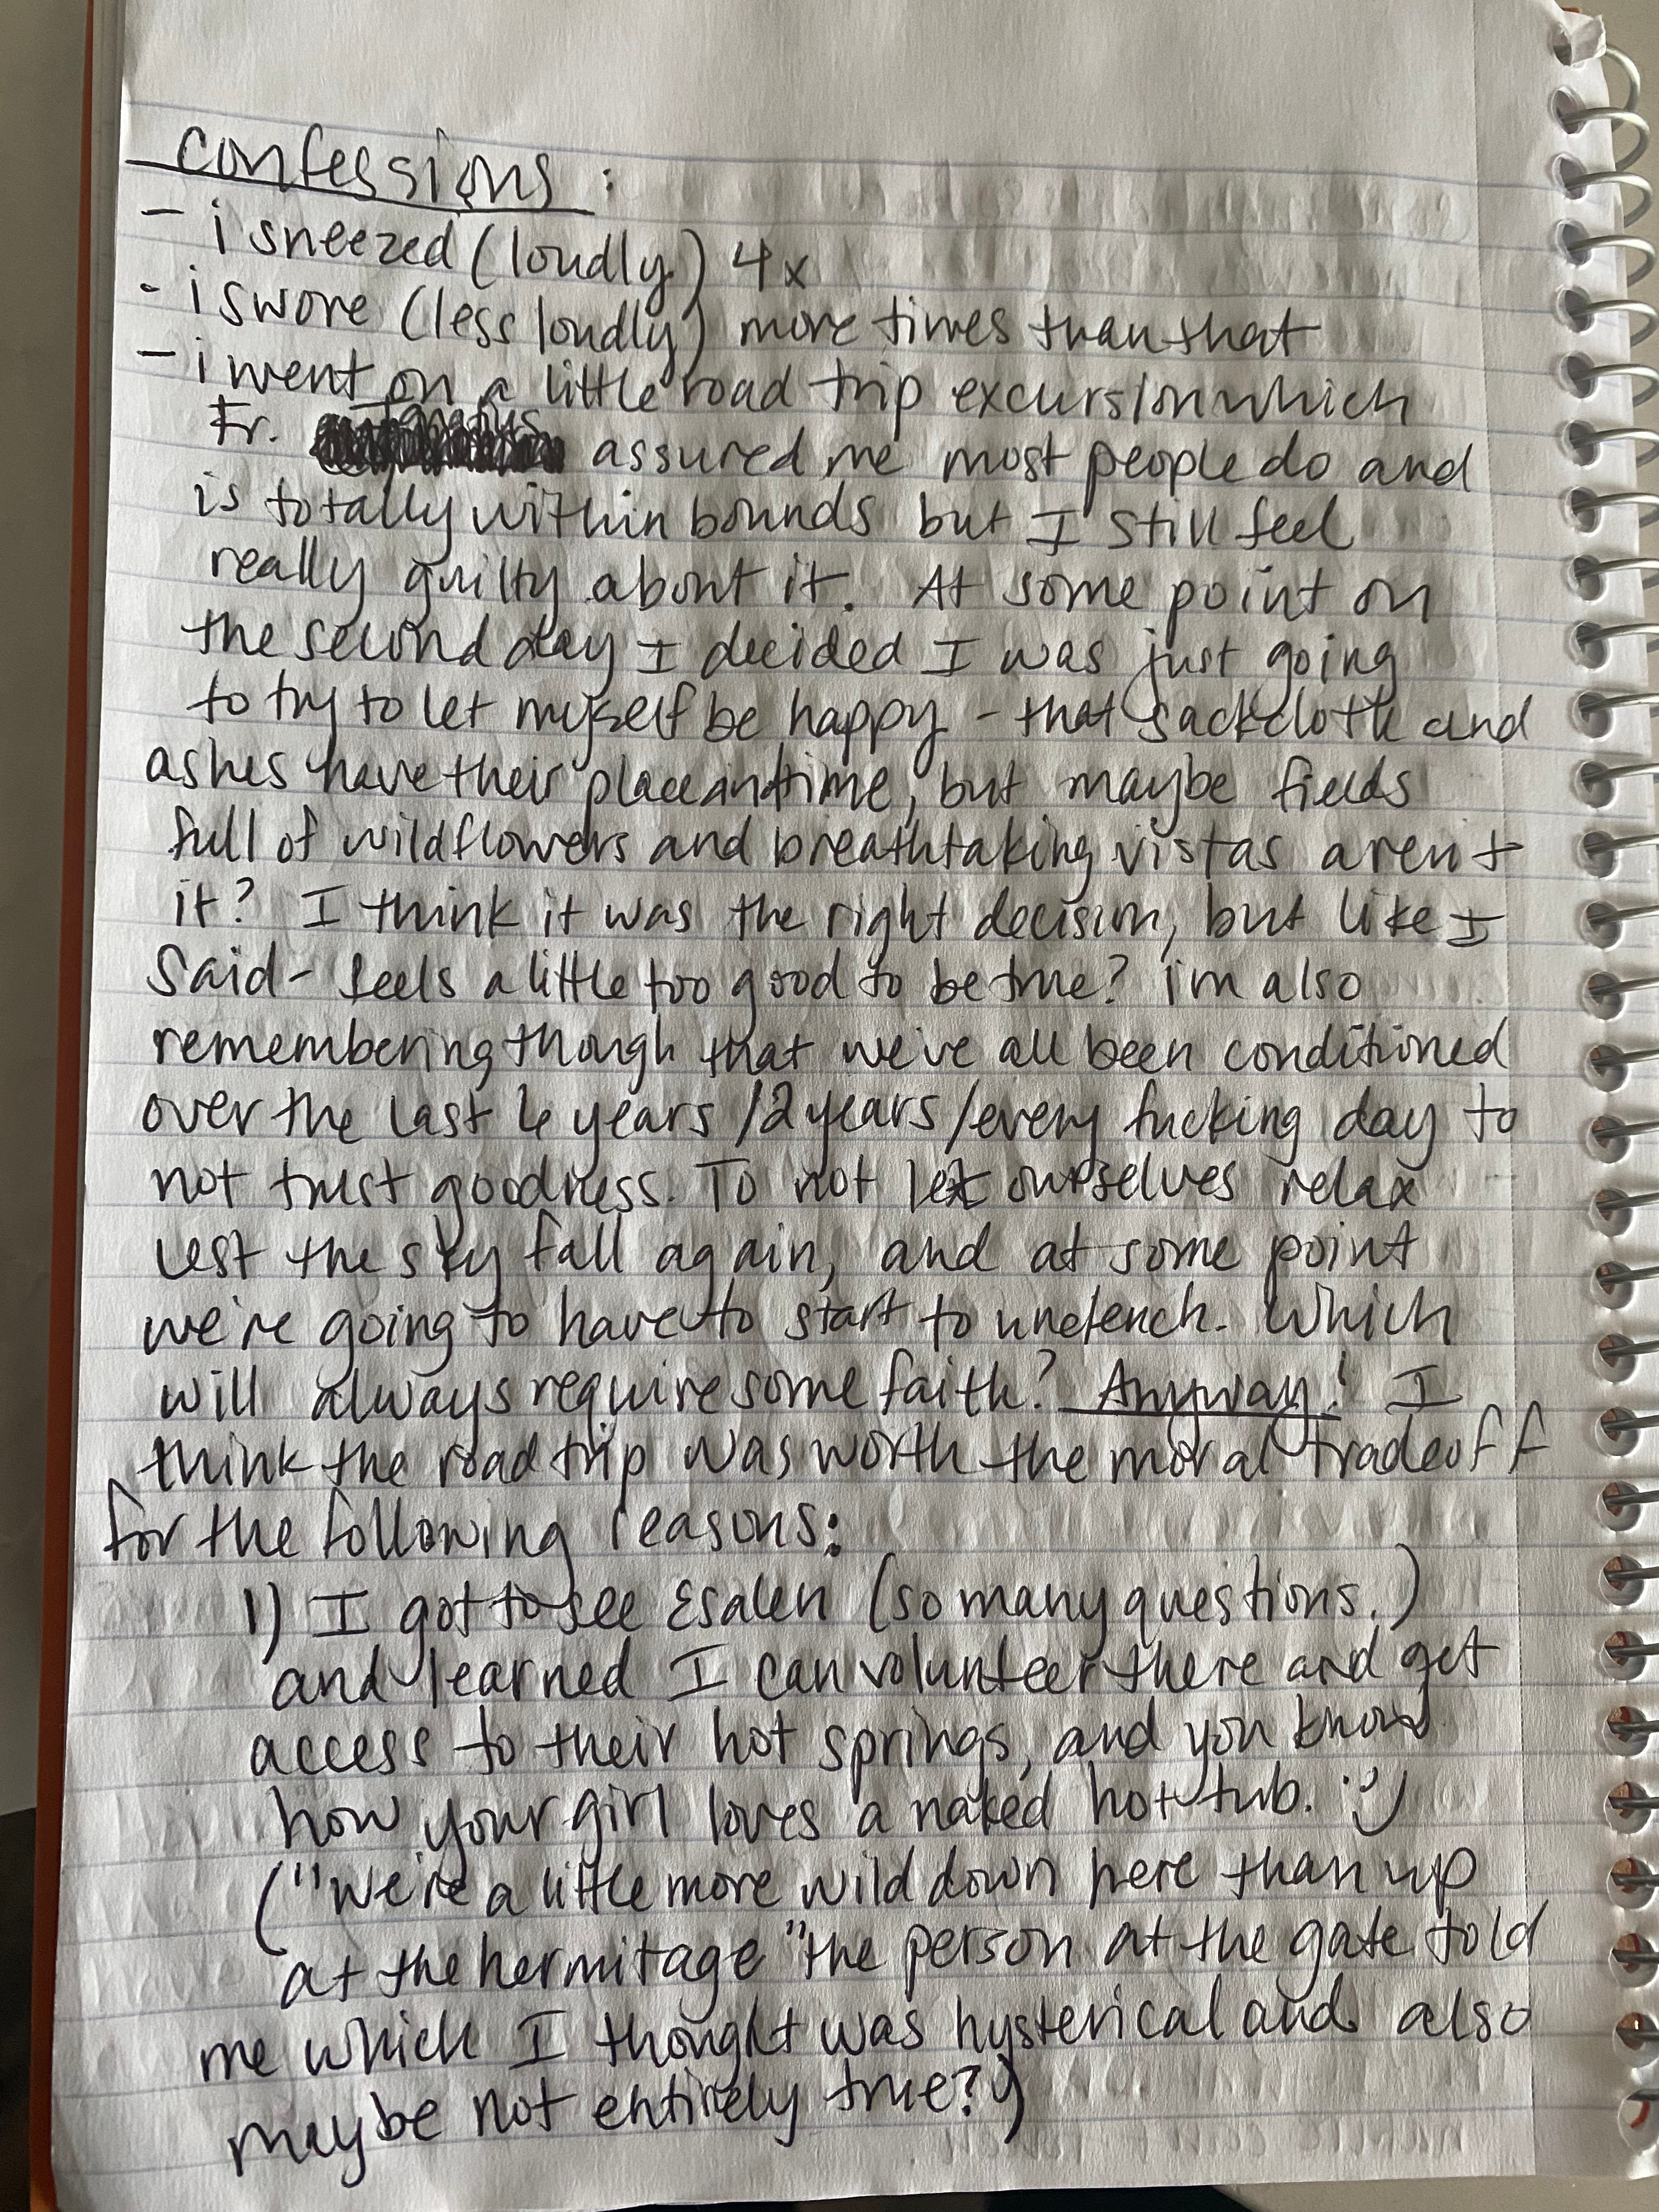 confessions:
- i sneezed (loudly) 4x
- i swore (less loudly) more times than that
- i went on a little road trip excursion which
Fr. assured me most people do and
is totally within bounds but I still feel
really guilty about it. At some point on
the second day I decided I was just going
to try to let myself be happy - that sackcloth and
ashes have their place and time, but maybe fields
full of wildflowers and breathtaking vistas aren't
it? I think it was the right decision, but like I
said - feels a little too good to be true? i'm also
remembering though that we've all been conditioned
over the last 6 years / 2 years / every fucking day to
not trust goodness. To not let ourselves relax
lest the sky fall again, and at some point
we're going to have to start to unclench. Which
will always require some faith? Anyway! I
think the road trip was worth the moral tradeoff
for the following reasons:
1) I got to see Esalen (so many questions.)
and learned I can volunteer there and get
access to their hot springs, and you know
how your girl loves a naked hot tub. :)
("We're a little more wild down here than up
at the hermitage" the person at the gate told
me which I thought was hysterical and also
maybe not entirely true?)